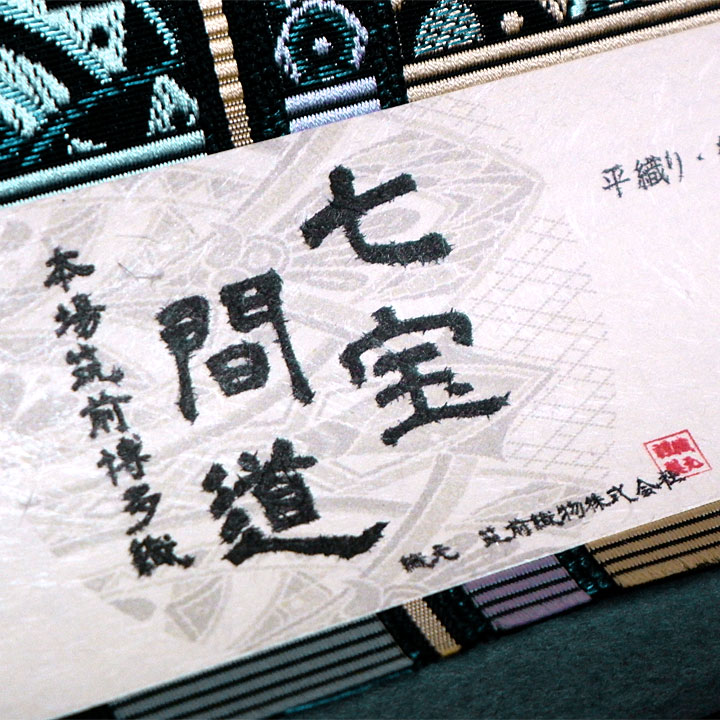 平織り・
七宝
間道
本場筑前博多織
織元 筑前織物株式会社